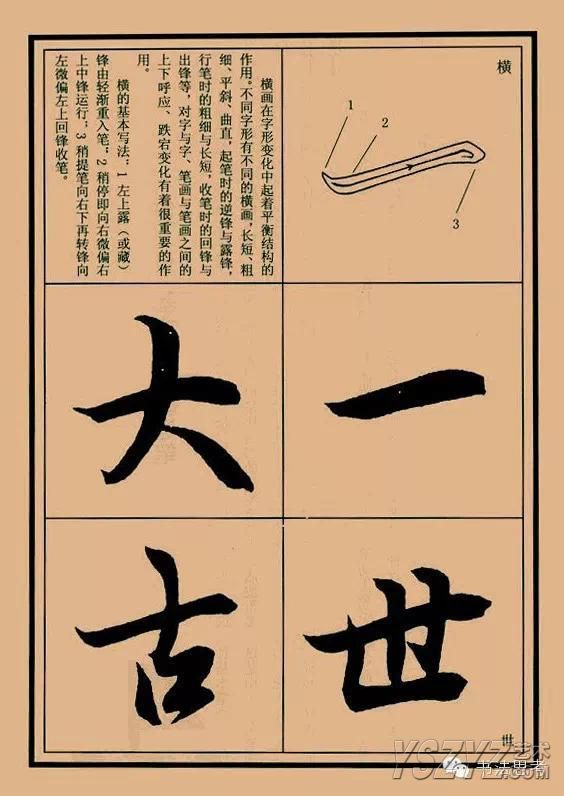 横
1
2
3
横画在字形变化中起着平衡结构的
作用。不同字形有不同的横画，长短、粗
细、平斜、曲直，起笔时的逆锋与露锋，
行笔时的粗细与长短，收笔时的回锋与
出锋等，对字与字、笔画与笔画之间的
上下呼应、跌宕变化有着很重要的作
用。
横的基本写法：1 左上露（或藏）
锋由轻渐重入笔；2 稍停即向右微偏右
上中锋运行；3 稍提笔向右下再转锋向
左微偏左上回锋收笔。
一
大
世
古
世
书法思考